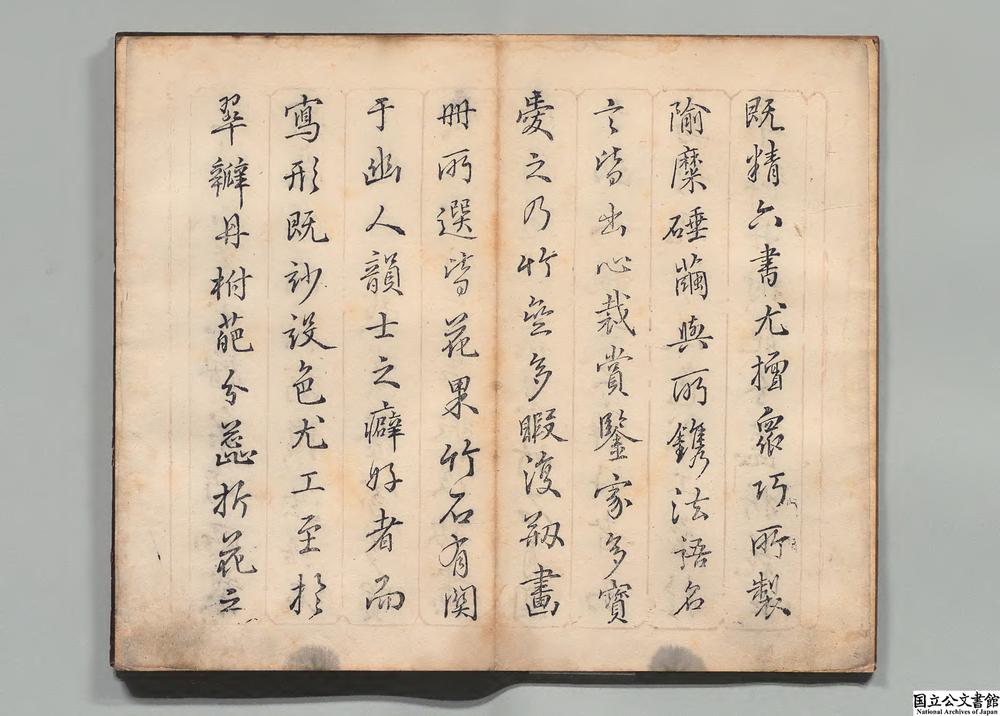 既精六書尤擅衆巧所製
隃糜硾繭與所鐫法語名
言皆出心裁賞鑒家多寶
愛之乃竹齋多暇復剏畫
冊所選皆花果竹石有関
于幽人韻士之癖好者而
寫形既妙設色尤工至於
翠瓣丹柎葩分蕋折花之
国立公文書館
National Archives of Japan